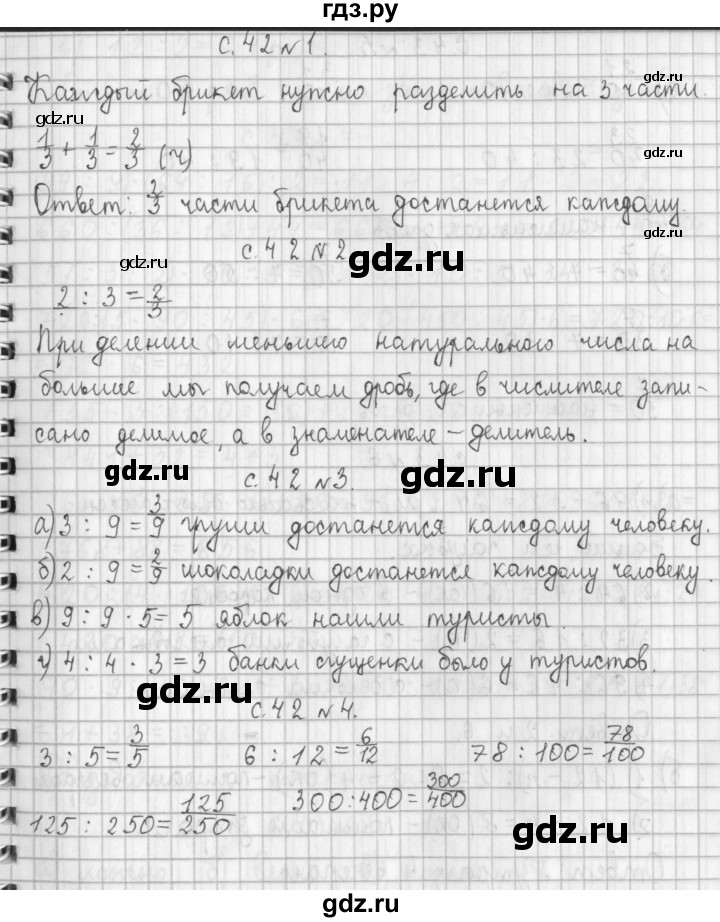 гдз.ру
с. 42 №1.
gdz.ru
Каждый брикет нужно разделить на 3 части.
gdz.ru
1/3 + 1/3 = 2/3 (ч)
gdz.ru
Ответ: 2/3 части брикета достанется каждому.
gdz.ru
с. 42 №2
gdz.ru
gdz.ru
2 : 3 = 2/3
При делении меньшего натурального числа на
большее мы получаем дробь, где в числителе запи-
сано делимое, а в знаменателе – делитель.
gdz.ru
с. 42 №3.
gdz.ru
а) 3 : 9 = 3/9 груши достанется каждому человеку.
б) 2 : 9 = 2/9 шоколадки достанется каждому человеку.
в) 9 : 9 · 5 = 5 яблок нашли туристы.
г) 4 : 4 · 3 = 3 банки сгущенки было у туристов.
gdz.ru
с. 42 №4.
3 : 5 = 3/5 6 : 12 = 6/12 78 : 100 = 78/100
125 : 250 = 125/250 300 : 400 = 300/400
gdz.ru
gdz.ru